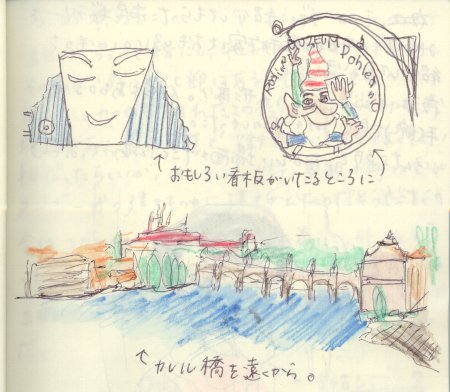 MUZEUM
おもしろい看板がいたるところに
カレル橋を遠くから。